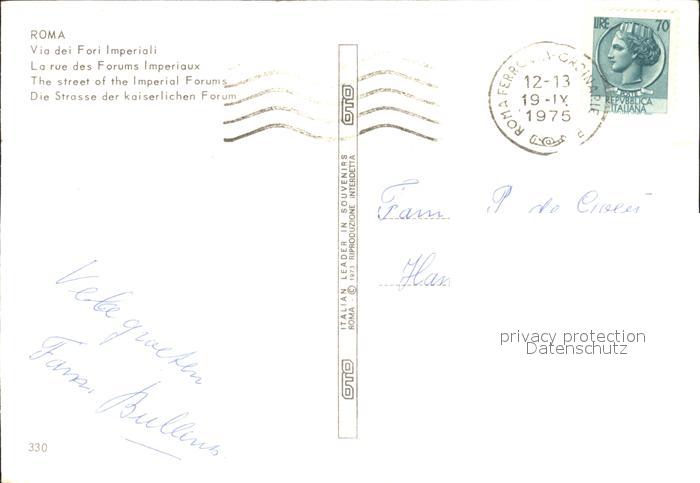 ROMA
Via dei Fori Imperiali
La rue des Forums Imperiaux
The street of the Imperial Forums
Die Strasse der kaiserlichen Forum
LIRE 70
POSTE
REPVBBLICA
ITALIANA
ROMA FERROVIA-ORDINARIE
12-13
19-IX
1975
OTO
ITALIAN LEADER IN SOUVENIRS
ROMA - © 1973 RIPRODUZIONE INTERDETTA
OTO
Fam P de
Han
privacy protection
Datenschutz
Vele groeten
Fam.
330